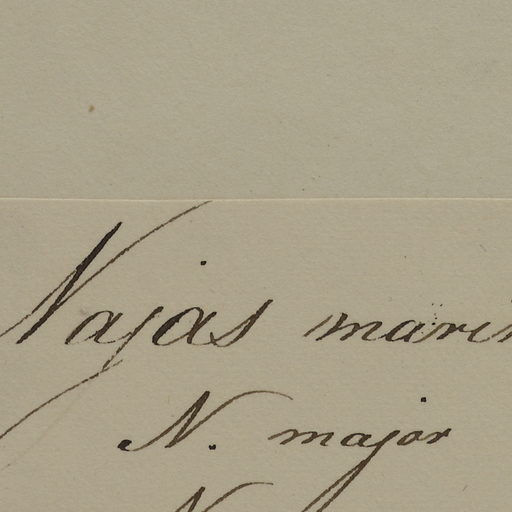 Najas marin
N. major
N